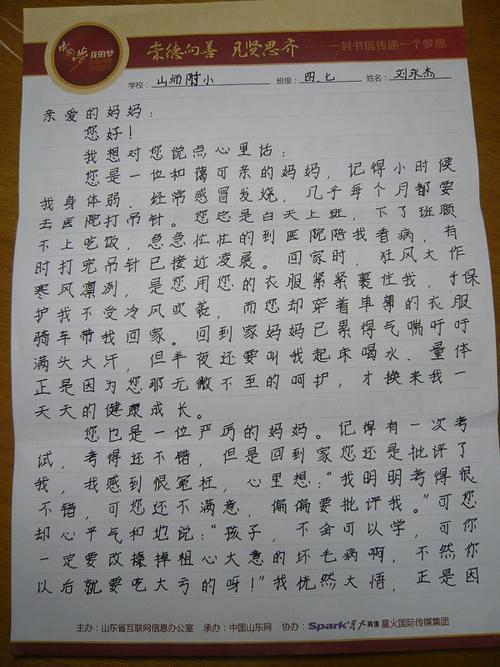 中国梦 我的梦
崇德向善 见贤思齐 一封书信传递一个梦想
学校：山师附小 班级：四.七 姓名：刘永杰
亲爱的妈妈：
您好！
我想对您说点心里话：
您是一位和蔼可亲的妈妈，记得小时候
我身体弱，经常感冒发烧，几乎每个月都要
去医院打吊针。您总是白天上班，下了班顾
不上吃饭，急急忙忙的到医院陪我看病，有
时打完吊针已接近凌晨。回家时，狂风大作
寒风凛冽，是您用您的衣服紧紧裹住我，才保
护我不受冷风吹袭，而您却穿着单薄的衣服
骑车带我回家。回到家妈妈已累得气喘吁吁
满头大汗，但半夜还要叫我起床喝水、量体
正是因为您那无微不至的呵护，才换来我一
天天的健康成长。
您也是一位严厉的妈妈。记得有一次考
试，考得还不错，但是回到家您还是批评了
我，我感到很冤枉，心里想：“我明明考得很
不错，可您还不满意，偏偏要批评我。”可您
却心平气和地说：“孩子，不会可以学，可你
一定要改掉粗心大意的坏毛病啊，不然你
以后就要吃大亏的呀！”我恍然大悟，正是因
主办：山东省互联网信息办公室 承办：中国山东网 协办：Spark 星火英语 星火国际传媒集团